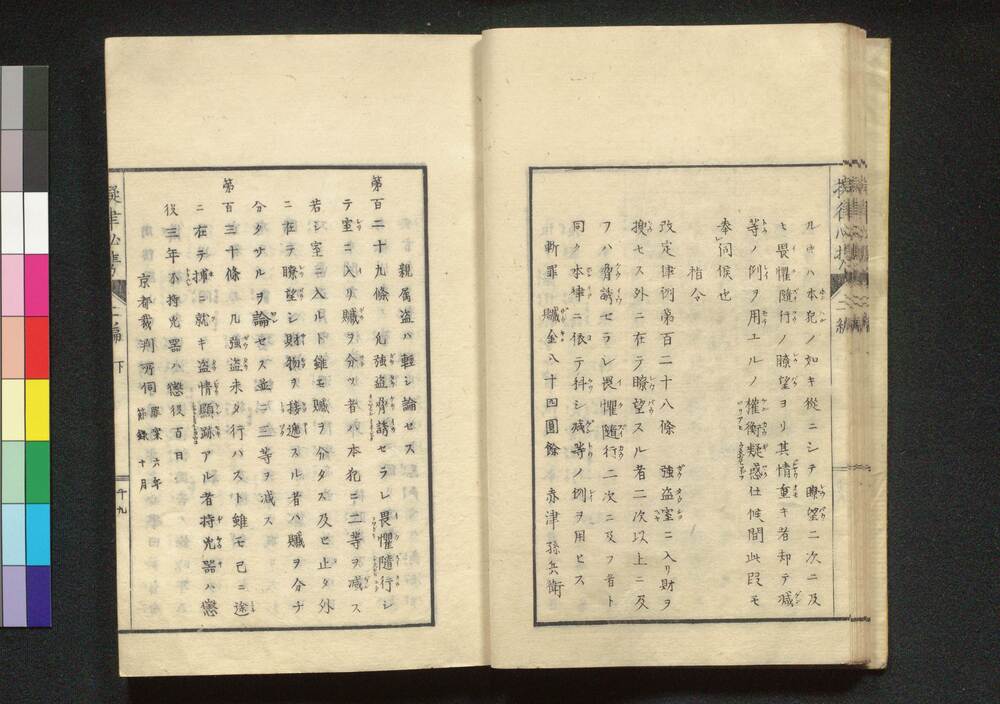 ルヿハ本犯ノ如キ從ニシテ瞭望二次ニ及
ヒ畏懼隨行ノ瞭望ヨリ其情重キ者却テ減
等ノ例ヲ用エルノ權衡疑惑仕候間此段モ
奉伺候也
指令
改定律例第百二十八條 強盗室ニ入リ財ヲ
搜セス外ニ在テ瞭望スル者二次以上ニ及
フハ脅誘セラレ畏懼隨行二次ニ及フ者ト
同ク本律ニ依テ科シ減等ノ例ヲ用ヒス
斬罪 贓金八十四圓餘 赤津孫兵衛
親属盗ハ輕シ論セス
第百二十九條 凡強盗脅誘セラレ畏懼隨行シ
テ室ニ入リ贓ヲ分ツ者ハ本犯ニ二等ヲ減ス
若シ室ニ入ルト雖モ贓ヲ分タス及ヒ止タ外
ニ在テ瞭望シ財物ヲ接遞スル者ハ贓ヲ分チ
分タサルヲ論セス並ニ三等ヲ減ス
第百三十條 凡強盗未タ行ハスト雖モ已ニ途
ニ在テ捕ニ就キ盗情顯跡アル者持兇器ハ懲
役三年不持兇器ハ懲役百日
京都裁判所伺 六年十月
二編 下
十九